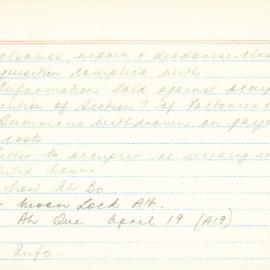 cleanse, repair & deodorise
quisition complied with
Information laid against occup
ention of Section 7 of Factories
Summons withdrawn on pay
costs
Letter to occupier re working
hours
Ah Bo
Moon Lock
Ah Que April 19 (A19)
Info.